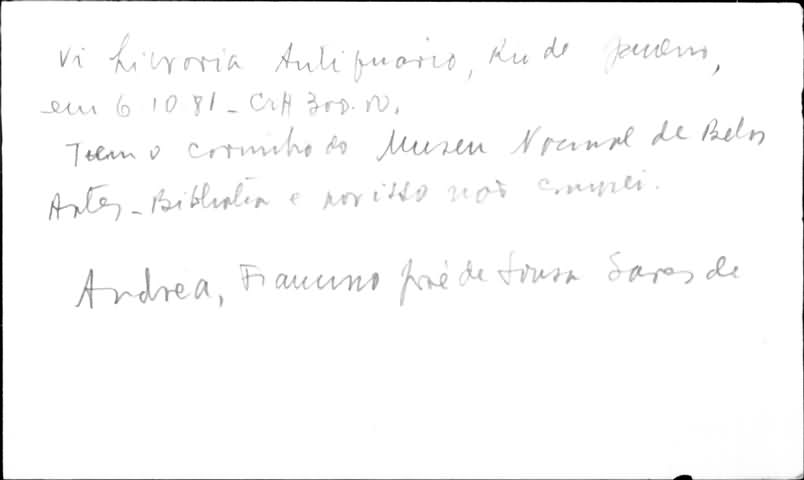 Vi Livraria Antiquário, Rio de Janeiro,
em 6 10 81 - Cr$ 300.00.
Tem o carimbo do Museu Nacional de Belas
Artes - Biblioteca e por isso não comprei.
Andréa, Francisco José de Sousa Soares de